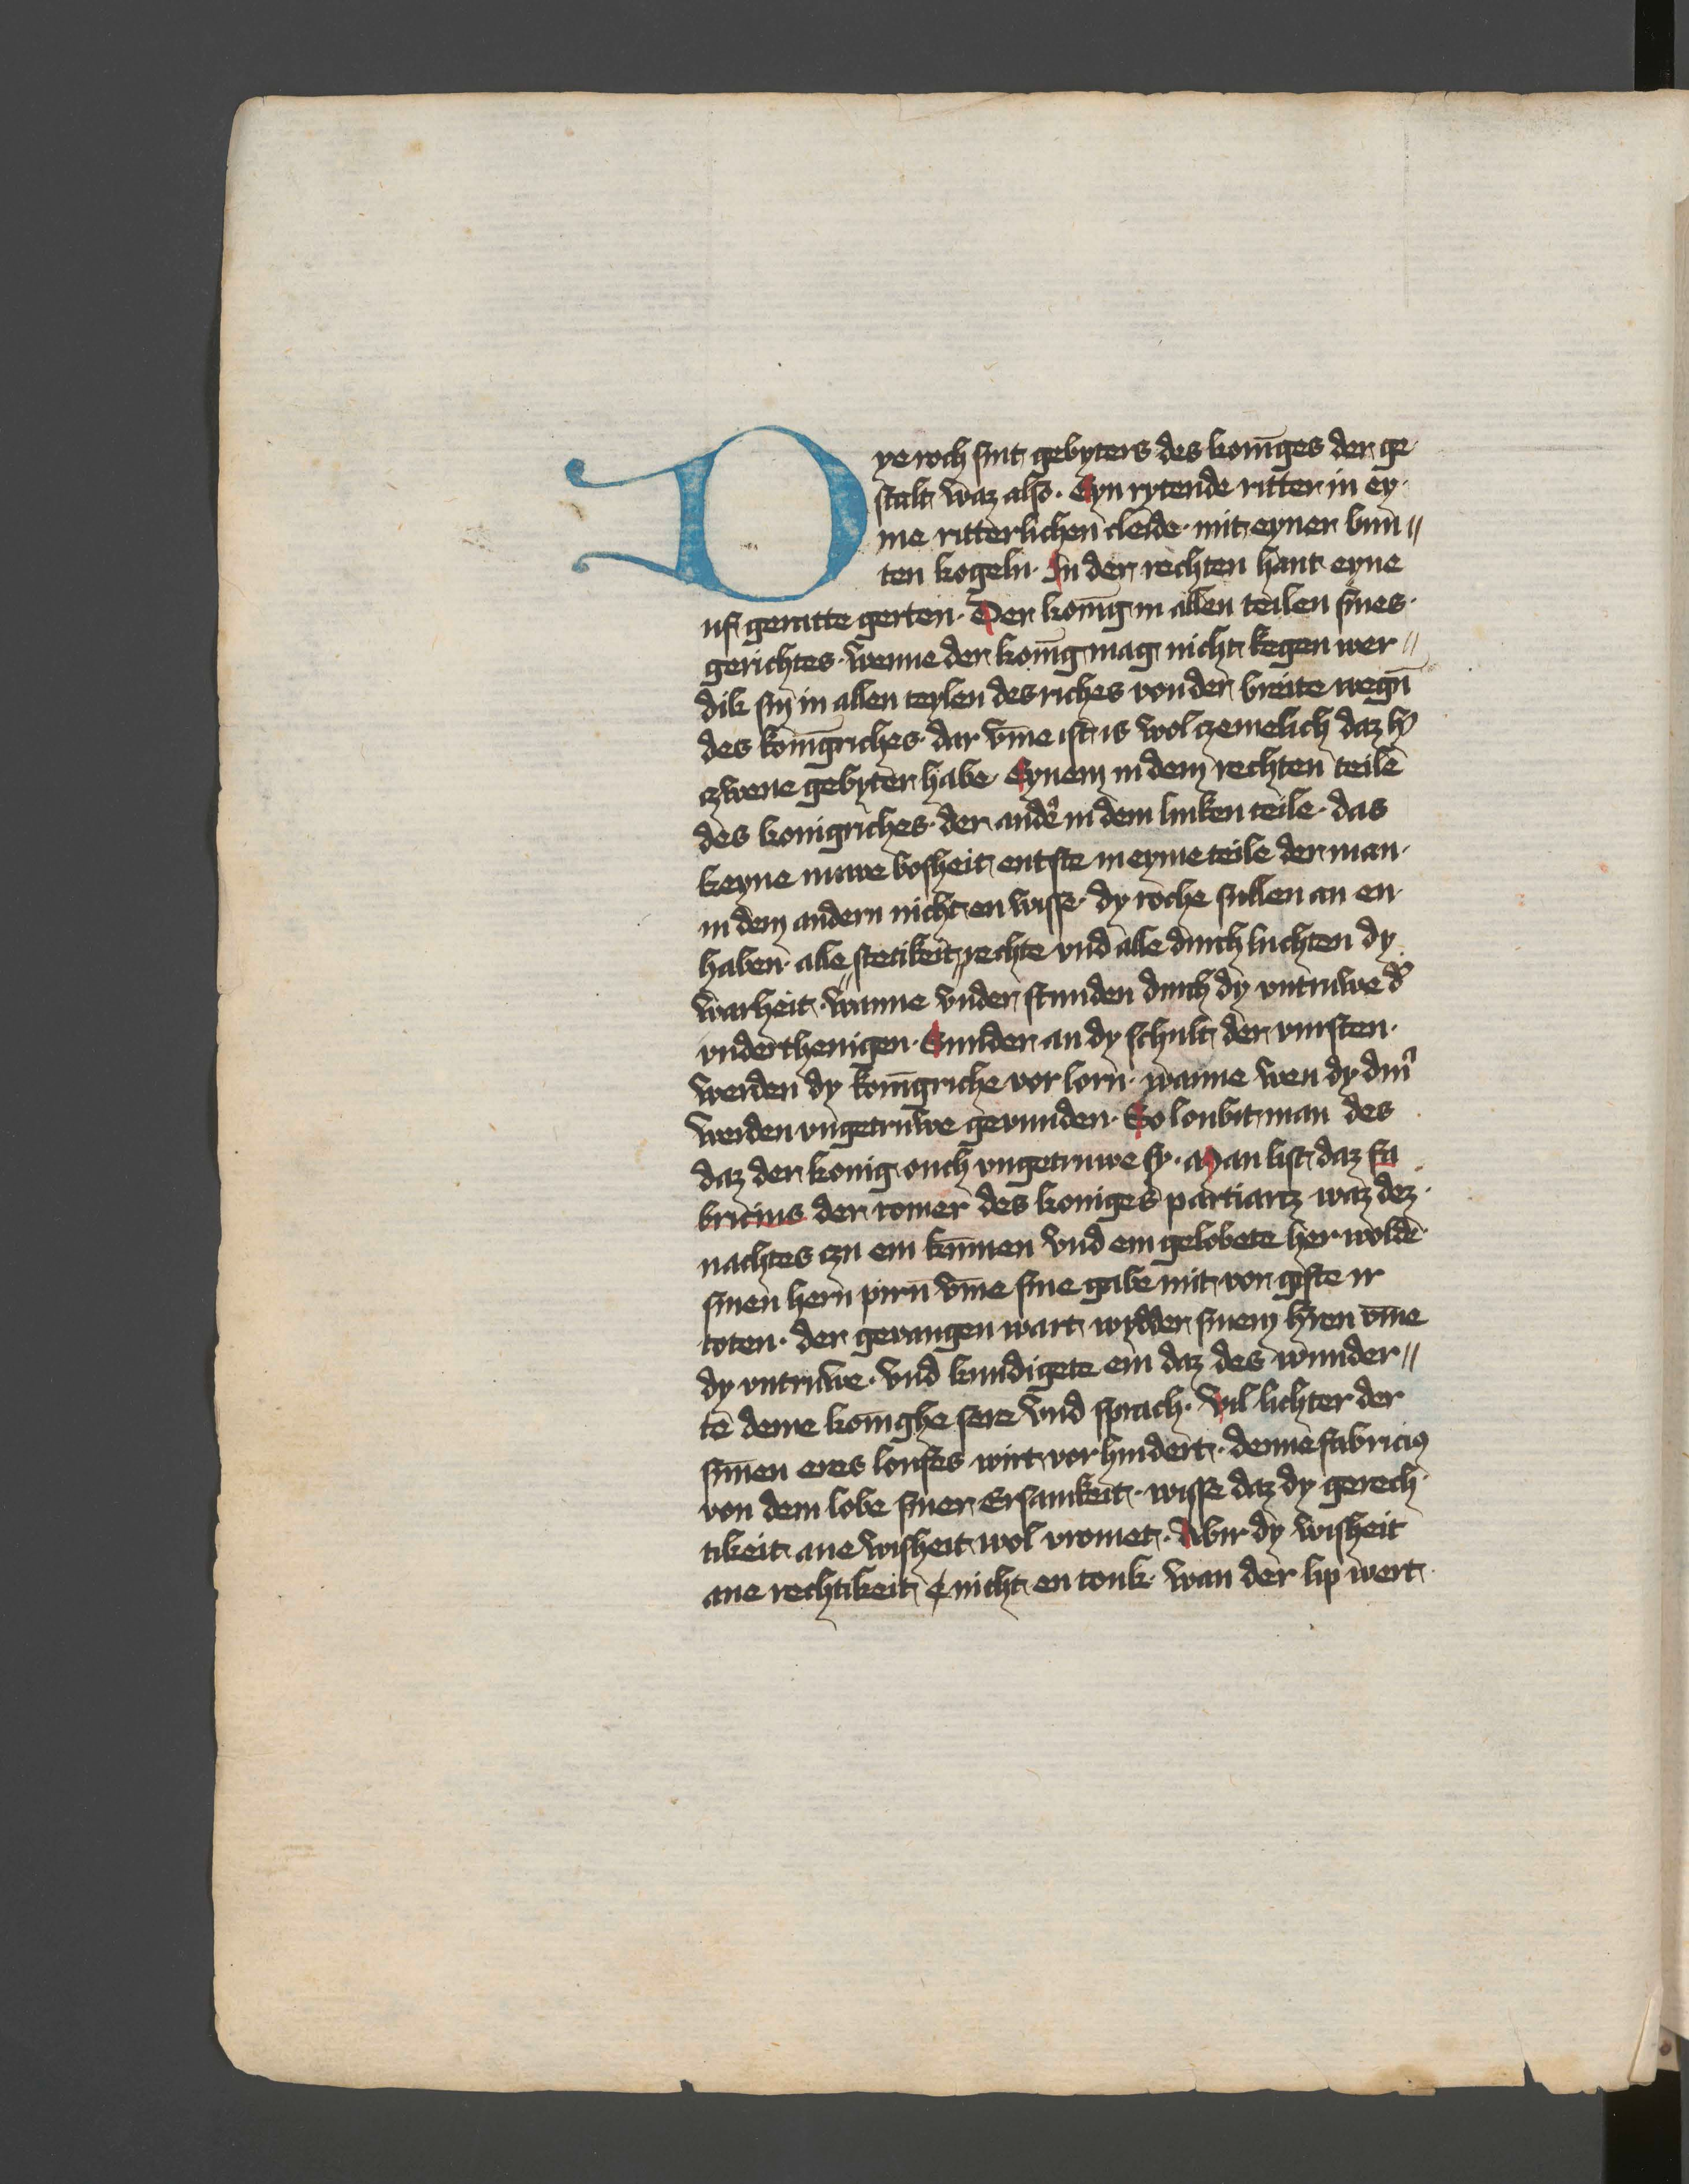 Dye roch sint gebyters des koniges der ge
stalt waz also · Eyn rytende ritter in ey
me ritterlichen cleide · mit eyner bun //
ten kogeln · In der rechten hant eyne
uf geratte gerten · Der konīg in allen teilen sines ·
gerichtes · wenne der konīg mag nicht kegen wer //
dik sin in allen teylen des riches von der breite wegn̄
des konīgriches · dar vm̄e ist is wol czemelich daz h'
czwene gebyter habe · Eynem in dem rechten teile
des konigriches · der ander in dem linken teile · das
keyne nuwe bosheit entste in eyme teile der man ·
in dem andern nicht en wisse · dy roche sullen an en ·
haben · alle stetikeit // rechte vnd alle durch luchten dy
warheit · wanne vnder stunden durch dy vntruwe d'
vnderthenigen · Sunder an dy schult der vursten ·
werden dy konīgriche vor lorn · wanne wen dy din̄'
werden vngetruwe gevunden · So loubit man des
daz der konig ouch vngetruwe sy · Man list daz fa
bricius der romer des koniges partiarcz waz dez ·
nachtes czu em kūmen vnd em gelobete her wolde
sinen hern pirn̄ vm̄e sine gabe mit vor gifte ir
toten · der gevangen wart wydder sinem h'ren vm̄e
dy vntruwe · vnd kundigete em daz des wunder //
tē deme konīghe sere vnd sprach · Vil lichter der
sūnen eres loufes wirt vor hindert · denne fabricius
von dem lobe siner Ersamkeit · wisse daz dy gerech
tikeit ane wisheit wol vromet · Abir dy wisheit
ane rechtikeit nicht en touk · wan der lip wert